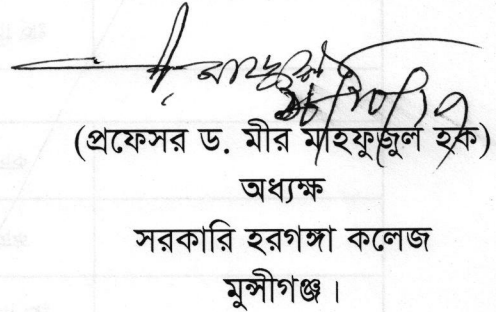 (প্রফেসর ড. মীর মাহফুজুল হক)
অধ্যক্ষ
সরকারি হরগঙ্গা কলেজ
মুন্সীগঞ্জ।